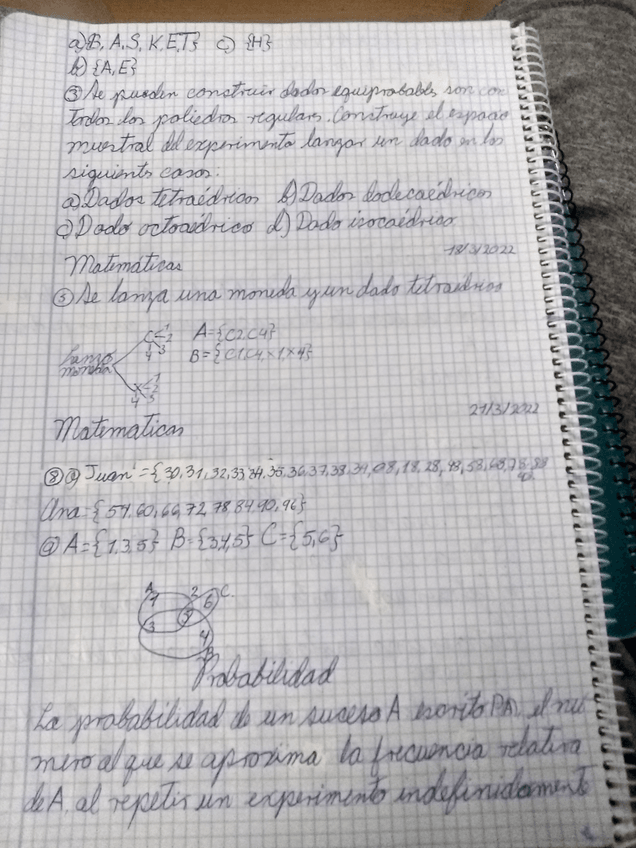 a) B, A, S, K, E, T} c) {H}
b) {A, E}
③ Se pueden construir dados equiprobables son con
todos los poliedros regulares. Construye el espacio
muestral del experimento lanzar un dado en los
siguientes casos:
a) Dados tetraédricos b) Dados dodecaédricos
c) Dado octoaédrico d) Dado isocaédrico
18/3/2022
Matemáticas
⑤ Se lanza una moneda y un dado tetraédrico
C 1 2 3 4 A={C2,C4}
Lanzo moneda B={C1,C4,x1,x4}
x 1 2 3 4
21/3/2022
Matematicas
⑧ Juan={30,31,32,33,34,35,36,37,38,39,08,18,28,48,58,68,78
Ana={54,60,66,72,78,84,90,96}
A={1,3,5} B={3,4,5} C={5,6}
A 2 C
1 6
3 5
4
B
Probabilidad
La probabilidad de un suceso A escrito PA, el nú
mero al que se aproxima la frecuencia relativa
de A, al repetir un experimento indefinidamente